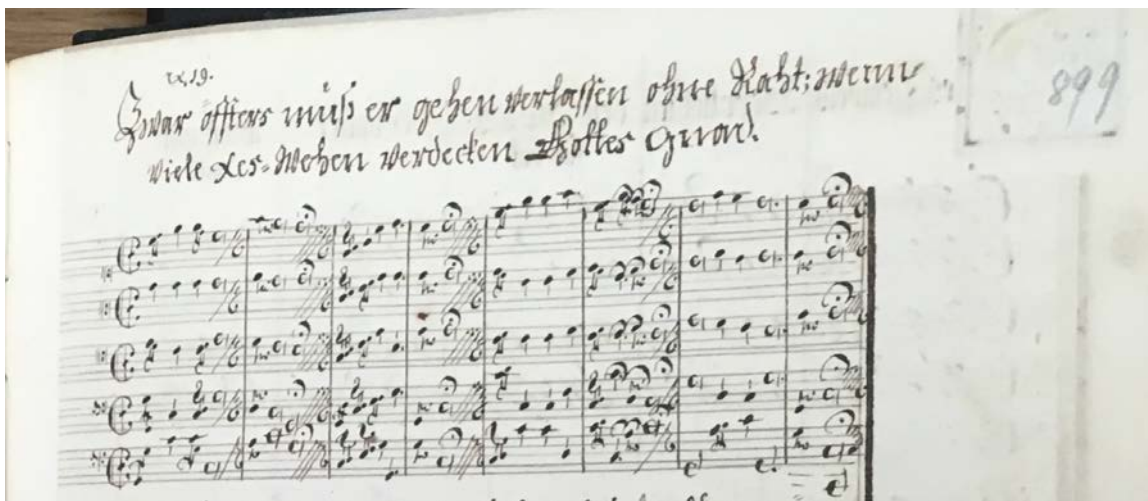 v. 19.
Zwar öffters muß er gehen verlassen ohne Raht; wenn
viele Xes-Wehen verdecken Gottes Gnad.
899